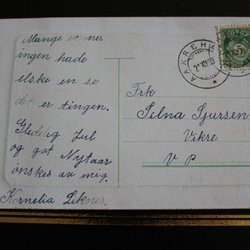 Mange venner
ingen hade
elske en so
det er tingen.
Glædelig Jul
og got Nytaar
ønskes av mig.
Kornelia Liknes.
AAKREHA
Frk
Selna Sjursen
Vikre
V P